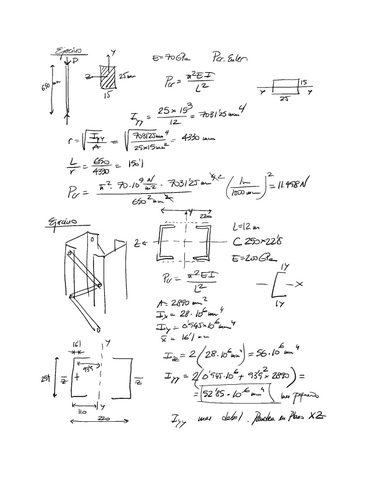 Ejercicio
P
650 mm
z
y
25mm
15
E = 70 GPa Pcr. Euler
Pcr = π²EI / L²
15
y y
25
Iyy = 25 × 15³ / 12 = 7031'25 mm⁴
r = √(Iyy / A) = √(7031'25 mm⁴ / 25×15 mm²) = 4330 mm
L / r = 650 / 4330 = 150'1
Pcr = π² 70·10⁹ N/m² · 7031'25 mm⁴ / 650² mm² (1m / 1000 mm)² = 11.498 N
Ejercicio
y
220
z
L = 12 m
C 250×22'8
E = 200 GPa
Pcr = π²EI / L²
1Y
X
1Y
A = 2890 mm²
Ix = 28·10⁶ mm⁴
Iy = 0'945×10⁶ mm⁴
x̄ = 16'1 mm
16'1
y
93'9
254
z z
110
y
220
Izz = 2 (28·10⁶ mm⁴) = 56·10⁶ mm⁴
Iyy = 2 (0'945·10⁶ + 93'9² × 2890) =
= 52'85·10⁶ mm⁴ mas pequeño
Iyy mas debil. en Plano XZ